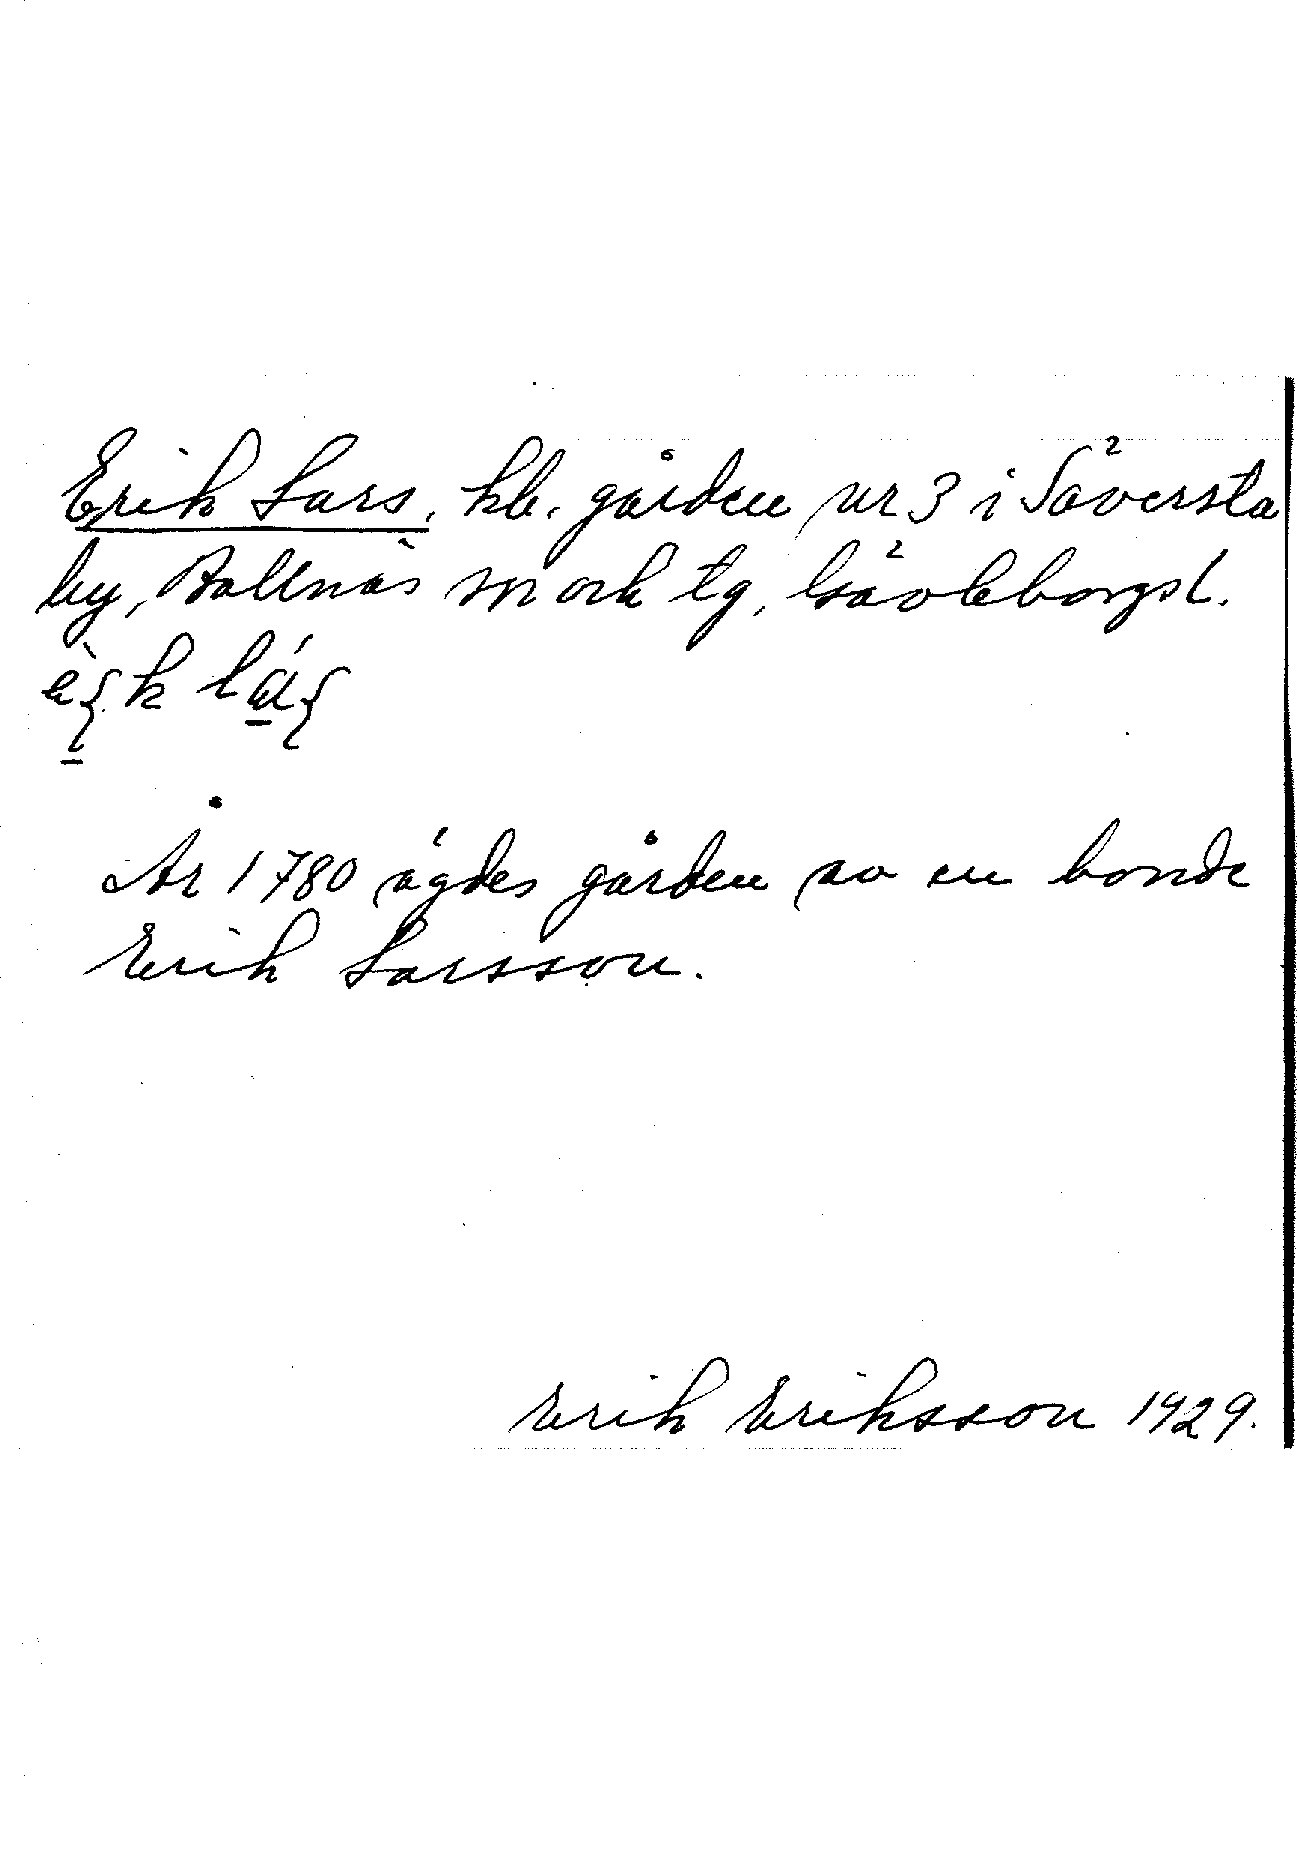 Erik Lars, kb. gården nr 3 i Säversta
by, Bollnäs sn och tg, Gävleborgs l.
År 1780 ägdes gården av en bonde
Erik Larsson.
Erik Eriksson 1929.